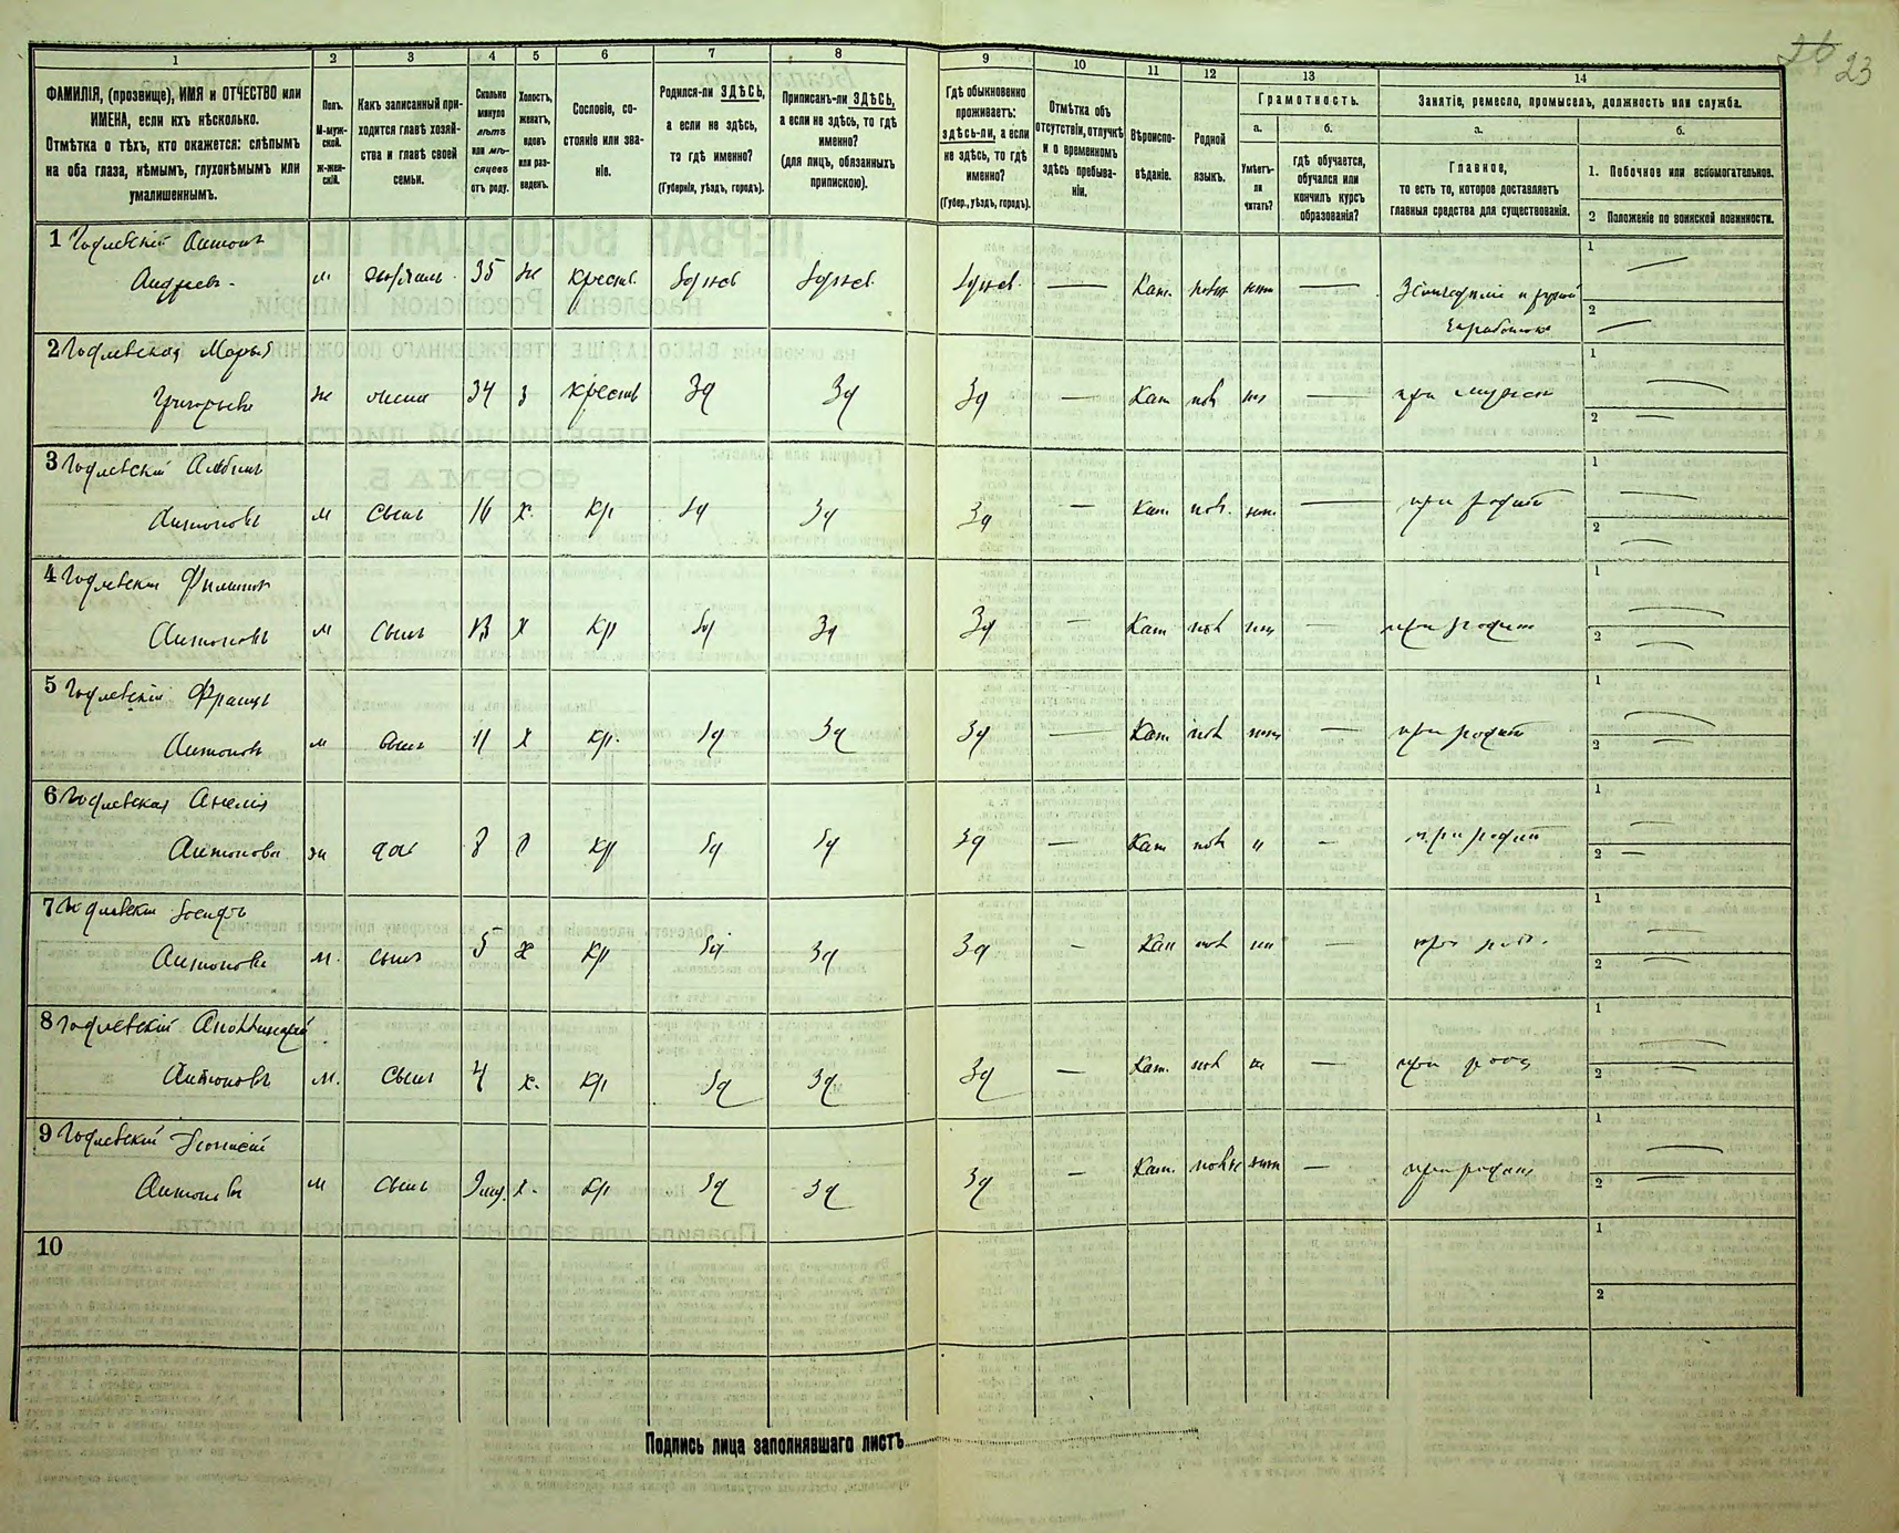 26 23
1 2 3 4 5 6 7 8 9 10 11 12 13 14
ФАМИЛІЯ, (прозвище), ИМЯ и ОТЧЕСТВО или
ИМЕНА, если ихъ нѣсколько.
Отмѣтка о тѣхъ, кто окажется: слѣпымъ
на оба глаза, нѣмымъ, глухонѣмымъ или
умалишеннымъ.
Полъ.
М-муж-
ской.
ж-жен-
скій.
Какъ записанный при-
ходится главѣ хозяй-
ства и главѣ своей
семьи.
Сколько
минуло
лѣтъ
или мѣ-
сяцевъ
отъ роду.
Холостъ,
женатъ,
вдовъ
или раз-
веденъ.
Сословіе, со-
стояніе или зва-
ніе.
Родился-ли ЗДѢСЬ,
а если не здѣсь,
то гдѣ именно?
(Губернія, уѣздъ, городъ).
Приписанъ-ли ЗДѢСЬ,
а если не здѣсь, то гдѣ
именно?
(для лицъ, обязанныхъ
припискою).
Гдѣ обыкновенно
проживаетъ:
здѣсь-ли, а если
не здѣсь, то гдѣ
именно?
(Губер., уѣздъ, городъ).
Отмѣтка объ
отсутствіи, отлучкѣ
и о временномъ
здѣсь пребыва-
ніи.
Вѣроиспо-
вѣданіе.
Родной
языкъ.
Грамотность.
а. б.
Умѣетъ-
ли
читать?
гдѣ обучается,
обучался или
кончилъ курсъ
образованія?
Занятіе, ремесло, промыселъ, должность или служба.
а. б.
Главное,
то есть то, которое доставляетъ
главныя средства для существованія.
1. Побочное или вспомогательное.
2 Положеніе по воинской повинности.
1 Годлевскій Антонъ
Андреевъ м 35 ж крест. Кат.
2 Годлевская Марья
Григорьева ж жена 34 з крест Зд Зд Зд — Кат при мужѣ
3 Годлевскій Альбинъ
Антоновъ м сынъ 16 х. кр Зд Зд Зд — Кат — при родит
4 Годлевскій Филиппъ
Антоновъ м сынъ 13 х кр Зд Зд Зд — Кат — при родит
5 Годлевскій Францъ
Антоновъ м сынъ 11 х кр. Зд Зд Зд — Кат — при родит
6 Годлевская Анелія
Антонова ж доч 8 кр Зд Зд Зд — Кат — при родит
7 Годлевскій Іосифъ
Антоновъ м. сынъ 5 х кр Зд Зд Зд — Кат — при
8 Годлевскій Апполинарій
Антоновъ м. сынъ 4 х. кр Зд Зд Зд — Кат. — при
9 Годлевскій
Антоновъ м сынъ х. кр Зд Зд Зд — Кат. — при родит
10
Подпись лица заполнявшаго листъ